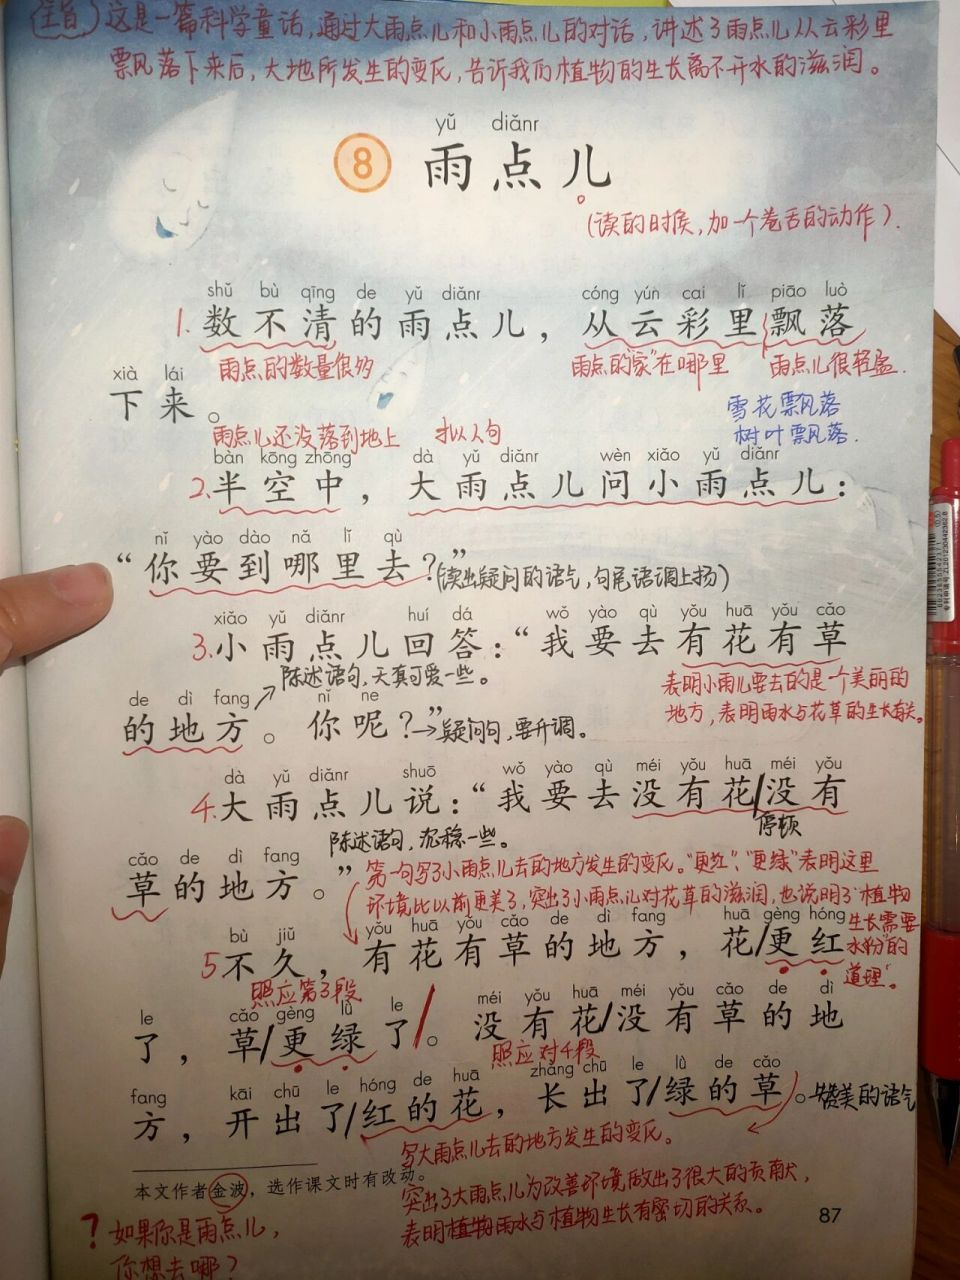 (主旨)这是一篇科学童话,通过大雨点儿和小雨点儿的对话,讲述了雨点儿从云彩里
飘落下来后,大地所发生的变化,告诉我们植物的生长离不开水的滋润。
yǔ diǎnr
8 雨点儿
(读的时候,加一个卷舌的动作).
shǔ bù qīng de yǔ diǎnr cóng yún cai lǐ piāo luò
1. 数不清的雨点儿，从云彩里飘落
雨点的数量很多 雨点的"家"在哪里 雨点儿很轻盈.
xià lái
下来。
雪花飘落
树叶飘落.
雨点儿还没落到地上 拟人句
bàn kōng zhōng dà yǔ diǎnr wèn xiǎo yǔ diǎnr
2. 半空中，大雨点儿问小雨点儿：
nǐ yào dào nǎ lǐ qù
“你要到哪里去？”(读出疑问的语气,句尾语调上扬)
xiǎo yǔ diǎnr huí dá wǒ yào qù yǒu huā yǒu cǎo
3. 小雨点儿回答：“我要去有花有草
陈述语句,天真可爱一些。 表明小雨儿要去的是一个美丽的
地方,表明雨水与花草的生长有关。
de dì fang nǐ ne
的地方。你呢？”→疑问句,要升调。
dà yǔ diǎnr shuō wǒ yào qù méi yǒu huā méi yǒu
4. 大雨点儿说：“我要去没有花/没有
陈述语句,沉稳一些。 停顿
cǎo de dì fang
草的地方。”
第一句写了小雨点儿去的地方发生的变化。"更红"、"更绿"表明这里
环境比以前更美了,突出了小雨点儿对花草的滋润,也说明了"植物
生长需要
水份"的
道理"。
bù jiǔ yǒu huā yǒu cǎo de dì fang huā gèng hóng
5 不久，有花有草的地方，花/更红
照应第3段
le cǎo gèng lǜ le méi yǒu huā méi yǒu cǎo de dì
了，草/更绿了/。没有花/没有草的地
照应对4段
fang kāi chū le hóng de huā zhǎng chū le lǜ de cǎo
方，开出了/红的花，长出了/绿的草。→赞美的语气
写大雨点儿去的地方发生的变化。
本文作者金波，选作课文时有改动。
突出了大雨点儿为改善环境做出了很大的贡献,
表明植物雨水与植物生长有密切的关系。
87
? 如果你是雨点儿,
你想去哪?